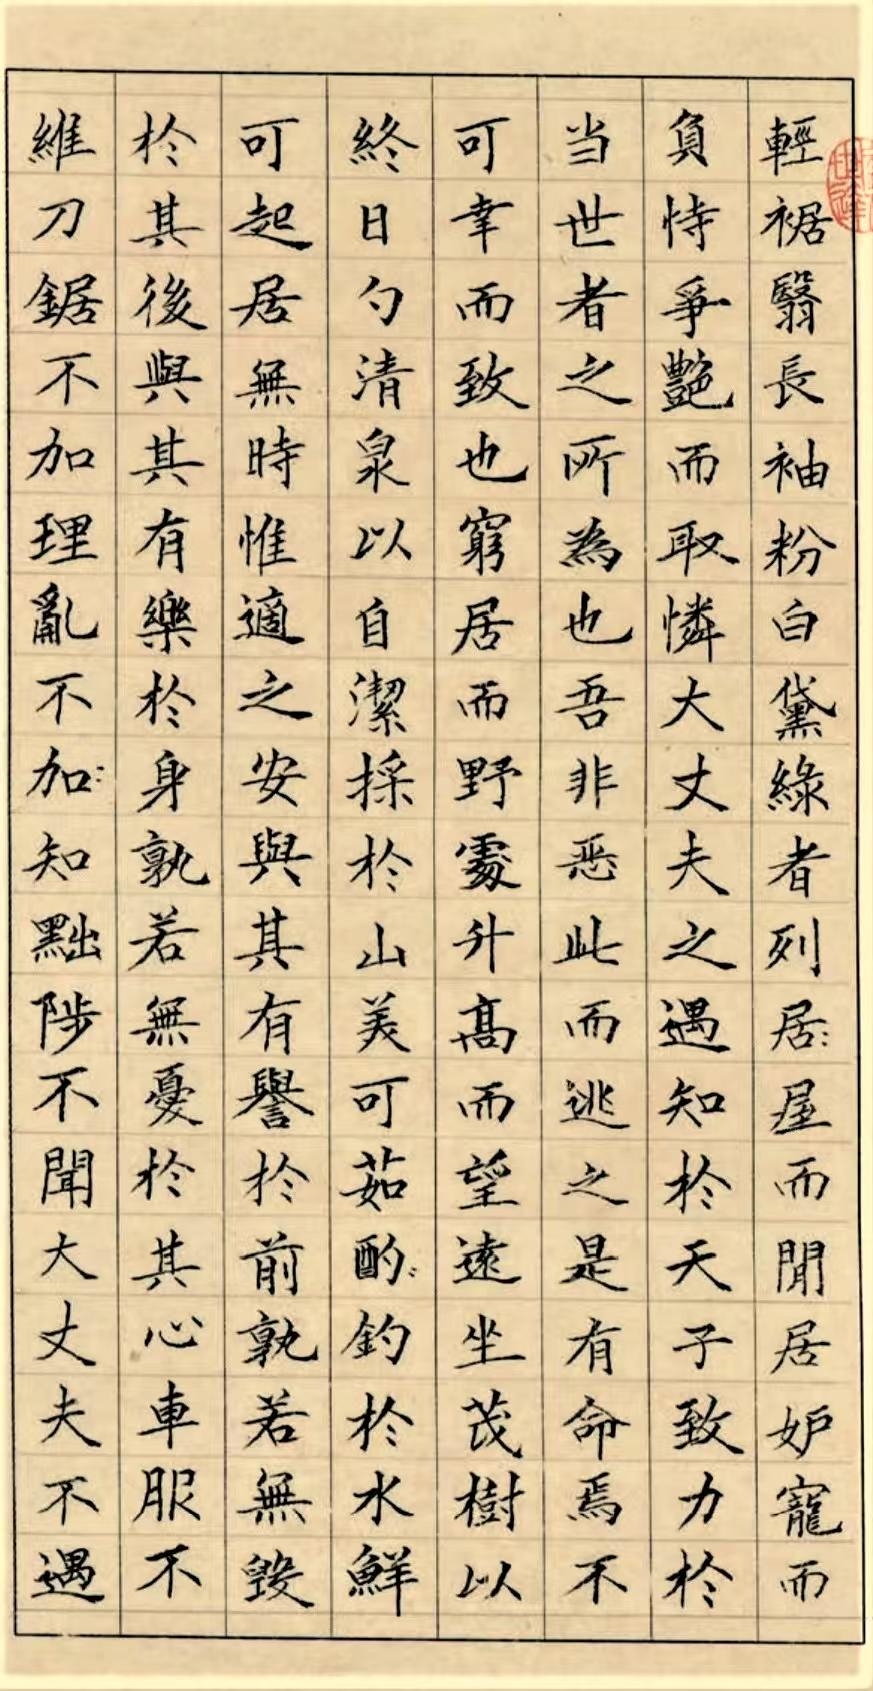 輕裾翳長袖粉白黛綠者列居:屋而閒居妒寵而
負恃爭艷而取憐大丈夫之遇知於天子致力於
当世者之所為也吾非恶此而逃之是有命焉不
可幸而致也窮居而野處升高而望遠坐茂樹以
終日勺清泉以自潔採於山美可茹酌:釣於水鮮
可起居無時惟適之安與其有譽於前孰若無毀
於其後與其有樂於身孰若無憂於其心車服不
維刀鋸不加理亂不加:知黜陟不聞大丈夫不遇